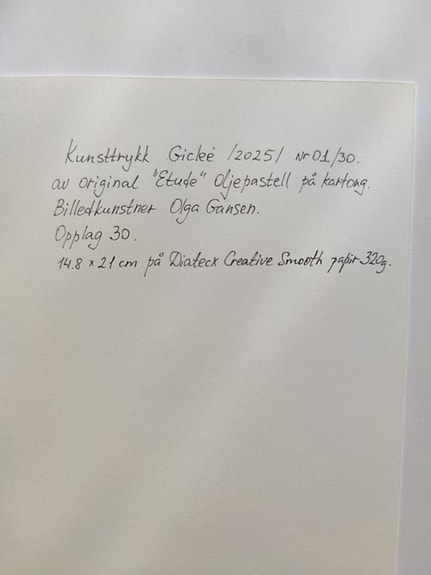 Kunsttrykk Gicleé /2025/ nr 01/30.
av original "Etude" Oljepastell på kartong.
Billedkunstner Olga Gansen.
Opplag 30.
14.8 x 21 cm på Diatecx Creative Smooth papir 320g.